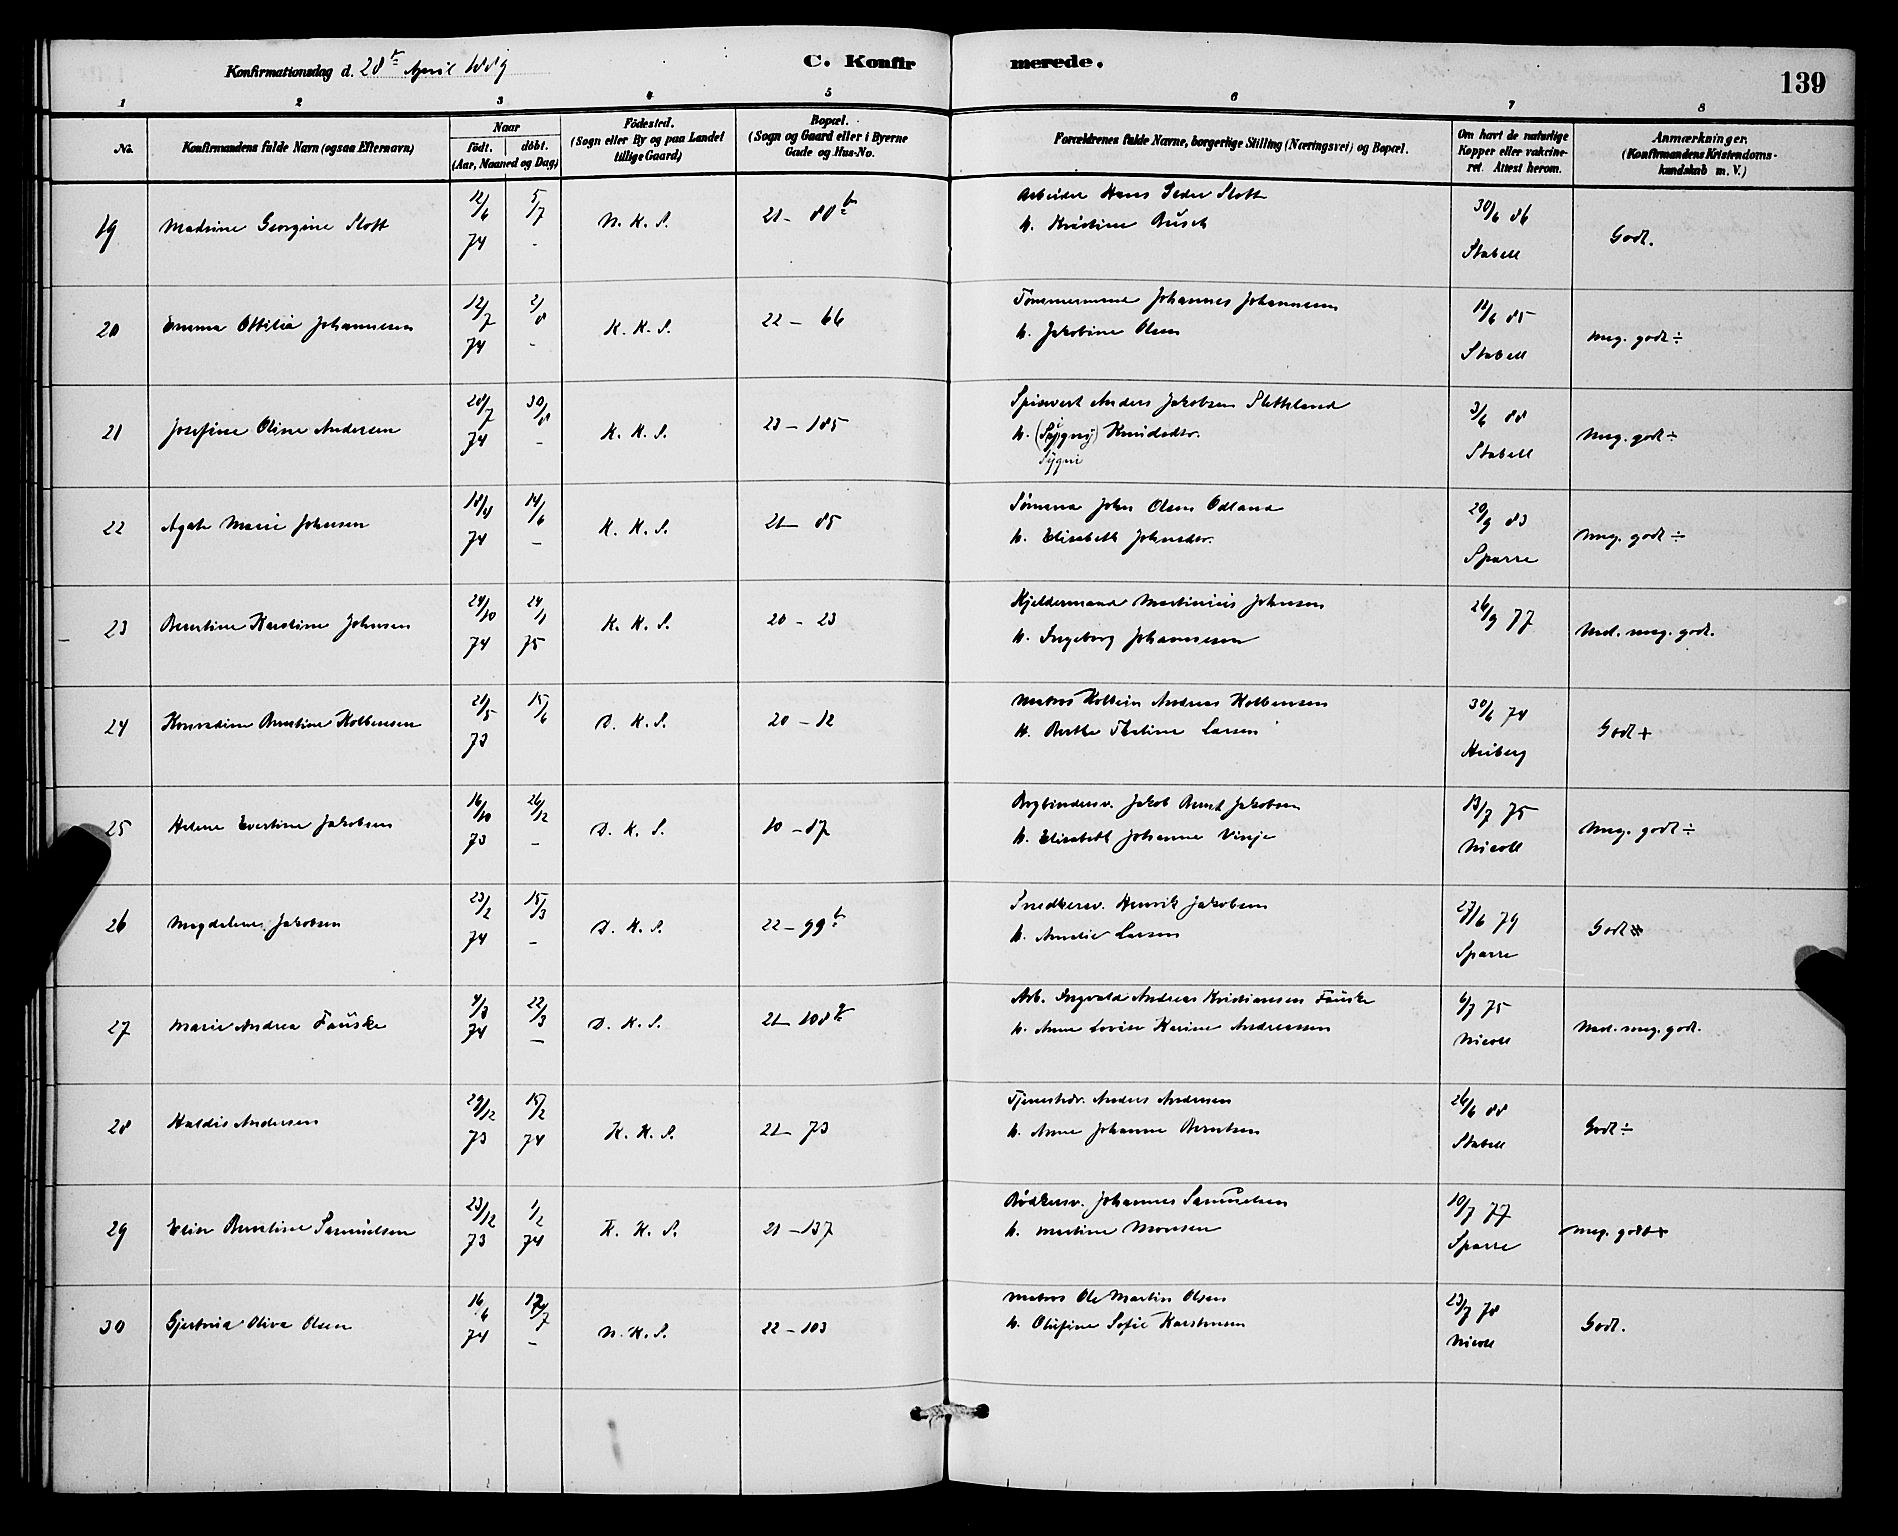 Konfirmationsdag d. 28de April 1889
C. Konfirmerede.
139
1 2 3 4 5 6 7 8
No. Konfirmandens fulde Navn (ogsaa Efternavn) Naar födt. döbt. (Aar, Maaned og Dag) Födested. (Sogn eller By og paa Landet tillige Gaard) Bopæl. (Sogn og Gaard eller i Byerne Gade og Hus-No. Forældrenes fulde Navne, borgerlige Stilling (Næringsvei) og Bopæl. Om havt de naturlige Kopper eller vakcineret. Attest herom. Anmærkninger. (Konfirmandens Kristendomskundskab m. V.)
19 Madsine Georgine Slott 12/6 74 5/7 - N. K. S. 21 - 88b Arbeider Hans Peder Slott
h. Kristine Busch 30/6 86 Stabell Godt.
20 Emma Ottilia Johannesen 12/7 74 2/8 - K. K. S. 22 - 66 Tømmermand Johannes Johannesen
h. Jakobine Olsen 11/6 85 Stabell meg. godt ÷
21 Josefine Oline Andersen 28/7 74 30/8 - K. K. S. 23 - 185 Spisevert Anders Jakobsen Sletteland
h. (Sygny) Knudsdtr.
Sygni 3/6 88 Stabell meg. godt ÷
22 Agate Marie Johnsen 18/4 74 14/6 - K. K. S. 21 - 85 Sømand John Olsen Odland
h. Elisabeth Johnsdtr. 20/9 83 Sparre meg. godt ÷
23 Berntine Karstine Johnsen 24/10 74 24/1 75 K. K. S. 20 - 23 Kjeldermand Martinius Johnsen
h. Ingeborg Johannesen 26/9 77 Med. meg. godt.
24 Konradine Berntine Kolbensen 21/5 73 15/6 D. K. S. 20 - 12 Matros Kolbein Andreas Kolbensen
h. Berthe Thaline Larsen 30/6 74 Heiberg Godt +
25 Helene Evertine Jakobsen 16/10 73 26/12 - D. K. S. 10 - 87 Bogbindersv. Jakob Bernt Jakobsen
h. Elisabeth Johanne Vinje 13/7 75 Nicoll meg. godt ÷
26 Magdalene Jakobsen 23/2 74 15/3 - D. K. S. 22 - 99b Snedkersv. Henrik Jakobsen
h. Amalie Larsen 27/6 79 Sparre Godt
27 Marie Andrea Fauske 4/3 74 22/3 - D. K. S. 21 - 108 Arb. Ingvald Andreas Kristiansen Fauske
h. Anne Lovise Karine Andreassen 6/7 75 Nicoll Med. meg. godt.
28 Haldis Andersen 29/12 73 15/2 74 K. K. S. 21 - 73 Tjenestkr. Anders Andersen
h. Anne Johanne Berntsen 26/6 88 Stabell Godt ÷
29 Elise Berntine Samuelsen 23/12 73 1/2 74 K. K. S. 21 - 137 Bødkersv. Johannes Samuelsen
h. Martine Monsen 10/7 77 Sparre meg. godt +
30 Gjertrud Oliva Olsen 16/6 74 12/7 - N. K. S. 22 - 103 Matros Ole Martin Olsen
h. Olufine Sofie Karstensen 23/7 78 Nicoll Godt.